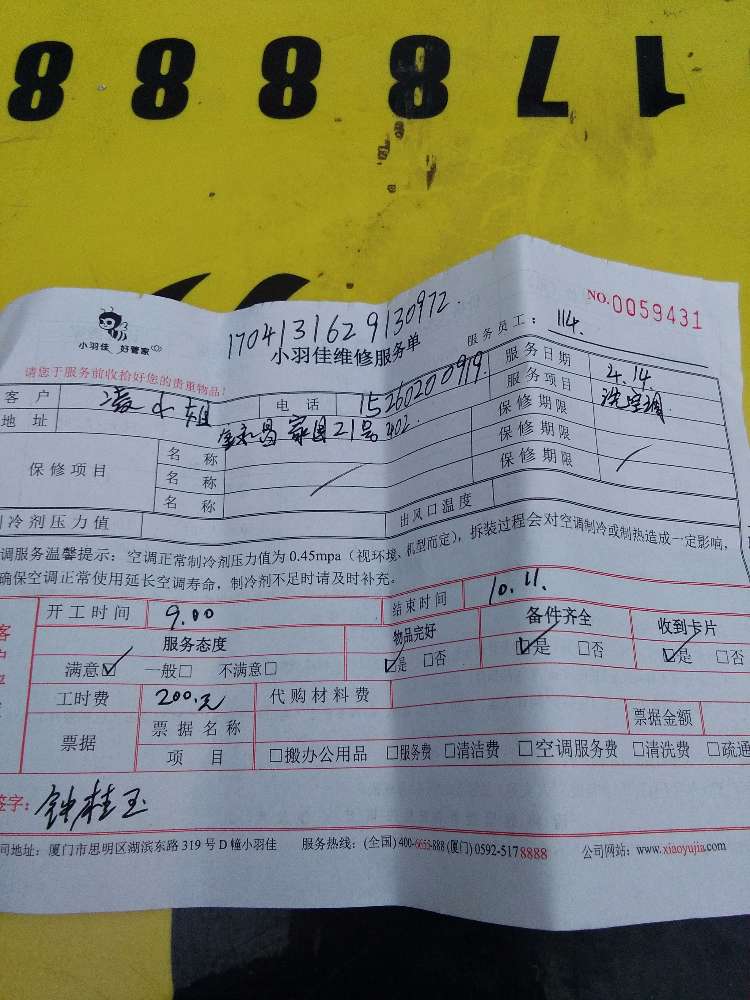 178888
NO.0059431
小羽佳 好管家
1704131629130972
小羽佳维修服务单
服务员工: 114.
请您于服务前收拾好您的贵重物品!
客户 凌小姐 电话 15260200919. 服务日期 4.14.
地址 家园21号402. 服务项目 洗空调
保修项目 名称 保修期限
名称 保修期限
名称 保修期限
冷剂压力值 出风口温度
调服务温馨提示: 空调正常制冷剂压力值为 0.45mpa(视环境、机型而定), 拆装过程会对空调制冷或制热造成一定影响,
确保空调正常使用延长空调寿命, 制冷剂不足时请及时补充。
开工时间 9.00 结束时间 10.11.
服务态度 物品完好 备件齐全 收到卡片
满意☑ 一般□ 不满意□ ☑是 □否 ☑是 □否 ☑是 □否
工时费 200.元 代购材料费
票据 票据名称 票据金额
项目 □搬办公用品 □服务费 □清洁费 □空调服务费 □清洗费 □疏通
签字: 钟桂玉
司地址: 厦门市思明区湖滨东路 319 号 D 幢小羽佳 服务热线: (全国) 400-6658-888 (厦门) 0592-5178888 公司网站: www.xiaoyujia.com